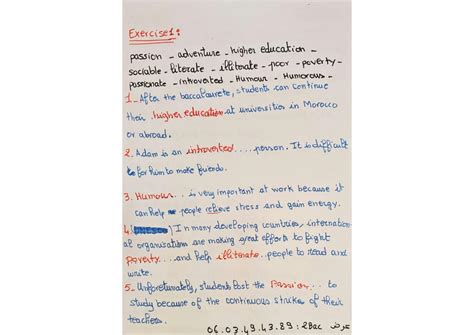 Exercise 1:
passion - adventure - higher education -
sociable - literate - illiterate - poor - poverty -
passionate - introverted - Humour - Humorous -
1- After the baccalaurete, students can continue
their higher education at universities in Morocco
or abroad.
2. Adam is an introverted.... person. It is difficult
for him to make friends.
3. Humour... is very important at work because it
can help people relieve stress and gain energy.
4 ) In many developing countries, internation-
al organisations are making great efforts to fight
poverty....and help illiterate...people to read and
write.
5- Unforetunately, students lost the Passion... to
study because of the continuous strikes of their
teachers.
06.07.49.43.89 : 2Bac عرض